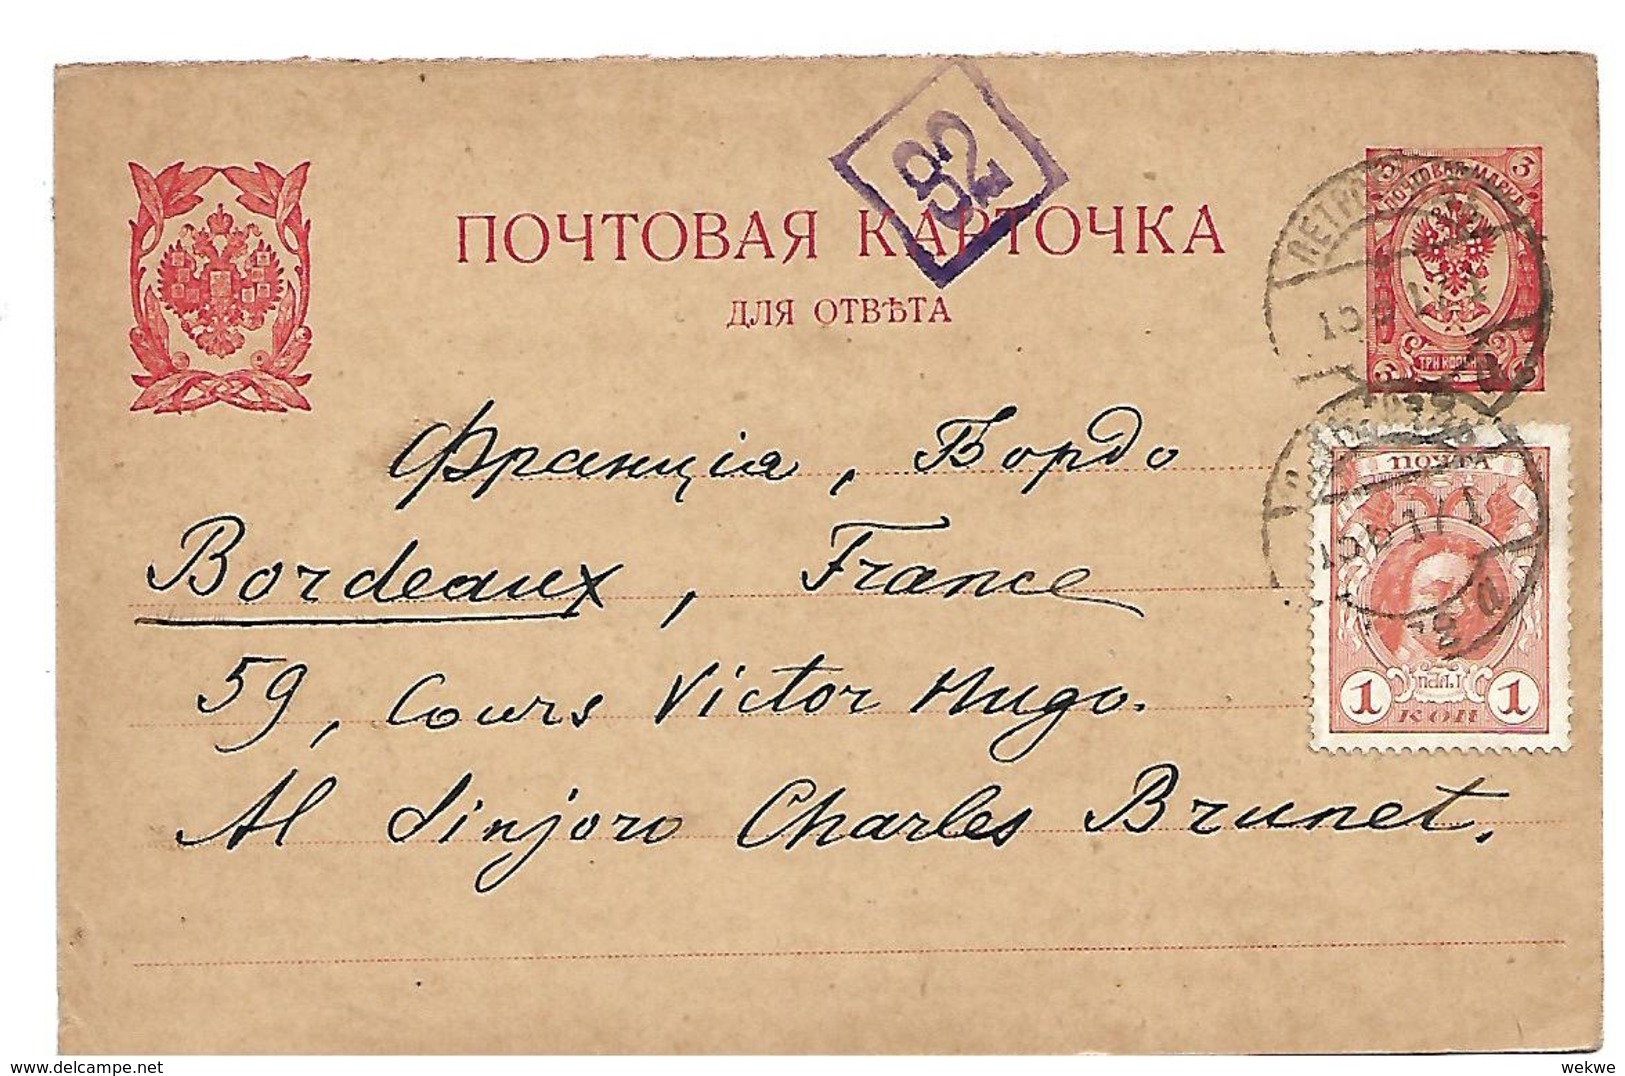 ПОЧТОВАЯ КАРТОЧКА
ДЛЯ ОТВѢТА
82
3 3
ПОЧТОВАЯ МАРКА
ТРИ КОП
3
Франція, Бордо
Bordeaux, France
59, Cours Victor Hugo.
Al Sinjoro Charles Brunet.
ПОЧТА
1 1
КОП
delcampe.net
wekwe